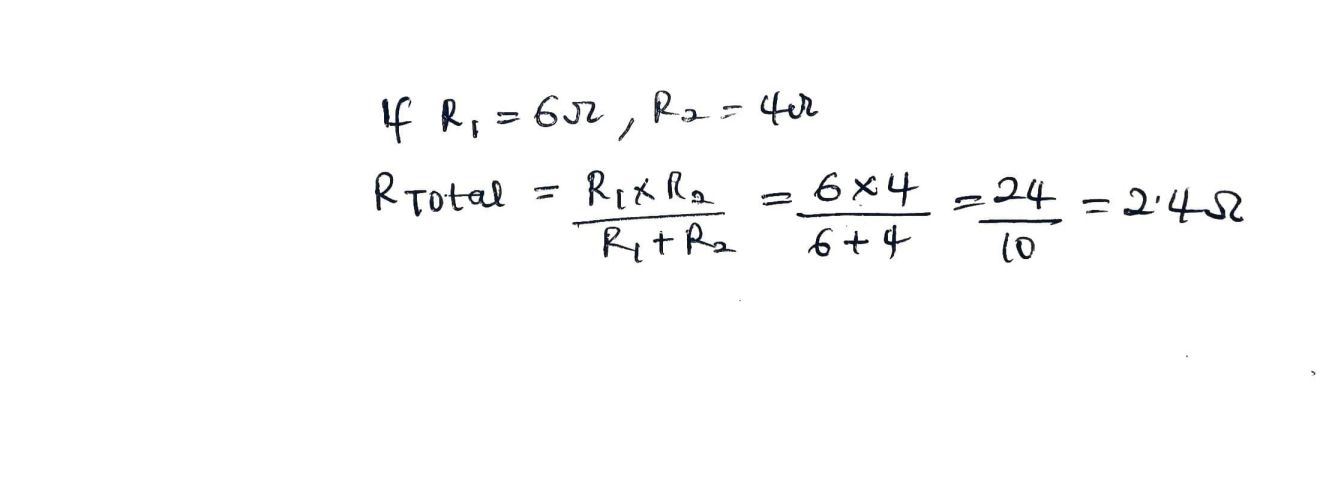 If R₁ = 6Ω, R₂ = 4Ω
R Total = R₁ x R₂ / R₁ + R₂ = 6 x 4 / 6 + 4 = 24 / 10 = 2.4Ω